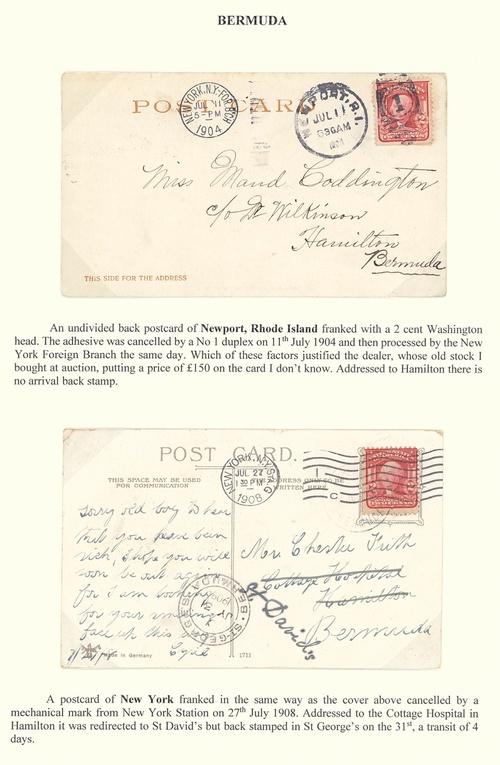 BERMUDA
POST CARD
NEW YORK, N.Y.-FOR.BCH
JUL 11
5-PM
1904
NEWPORT, R.I.
JUL 11
630AM
1
2
Miss Maud Coddington
c/o Dr Wilkinson
Hamilton
Bermuda
THIS SIDE FOR THE ADDRESS
An undivided back postcard of Newport, Rhode Island franked with a 2 cent Washington
head. The adhesive was cancelled by a No 1 duplex on 11th July 1904 and then processed by the New
York Foreign Branch the same day. Which of these factors justified the dealer, whose old stock I
bought at auction, putting a price of £150 on the card I don't know. Addressed to Hamilton there is
no arrival back stamp.
POST CARD.
THIS SPACE MAY BE USED
FOR COMMUNICATION
ADDRESS ONLY TO BE
WRITTEN HERE
NEW YORK, N.Y. STA. G
JUL 27
30 PM
1908
C
Sorry old boy to hear
that you have been
sick, I hope you will
soon be out again
for I am looking
for your smiling
face up this
Cyril
Mr Chester Frith
Cottage Hospital
Hamilton
Bermuda
St Davids
ST. GEORGES BERMUDA
Made in Germany
1711
A postcard of New York franked in the same way as the cover above cancelled by a
mechanical mark from New York Station on 27th July 1908. Addressed to the Cottage Hospital in
Hamilton it was redirected to St David's but back stamped in St George's on the 31st, a transit of 4
days.